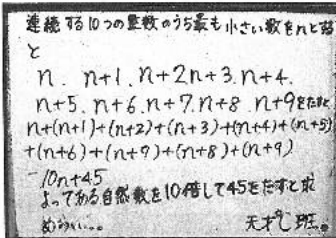 連続する10つの整数のうち最も小さい数をnとする
と
n. n+1. n+2 n+3. n+4.
n+5. n+6. n+7. n+8. n+9をたすと
n+(n+1)+(n+2)+(n+3)+(n+4)+(n+5)
+(n+6)+(n+7)+(n+8)+(n+9)
=10n+45
よってある自然数を10倍して45をたすと求
められる。 天才 班